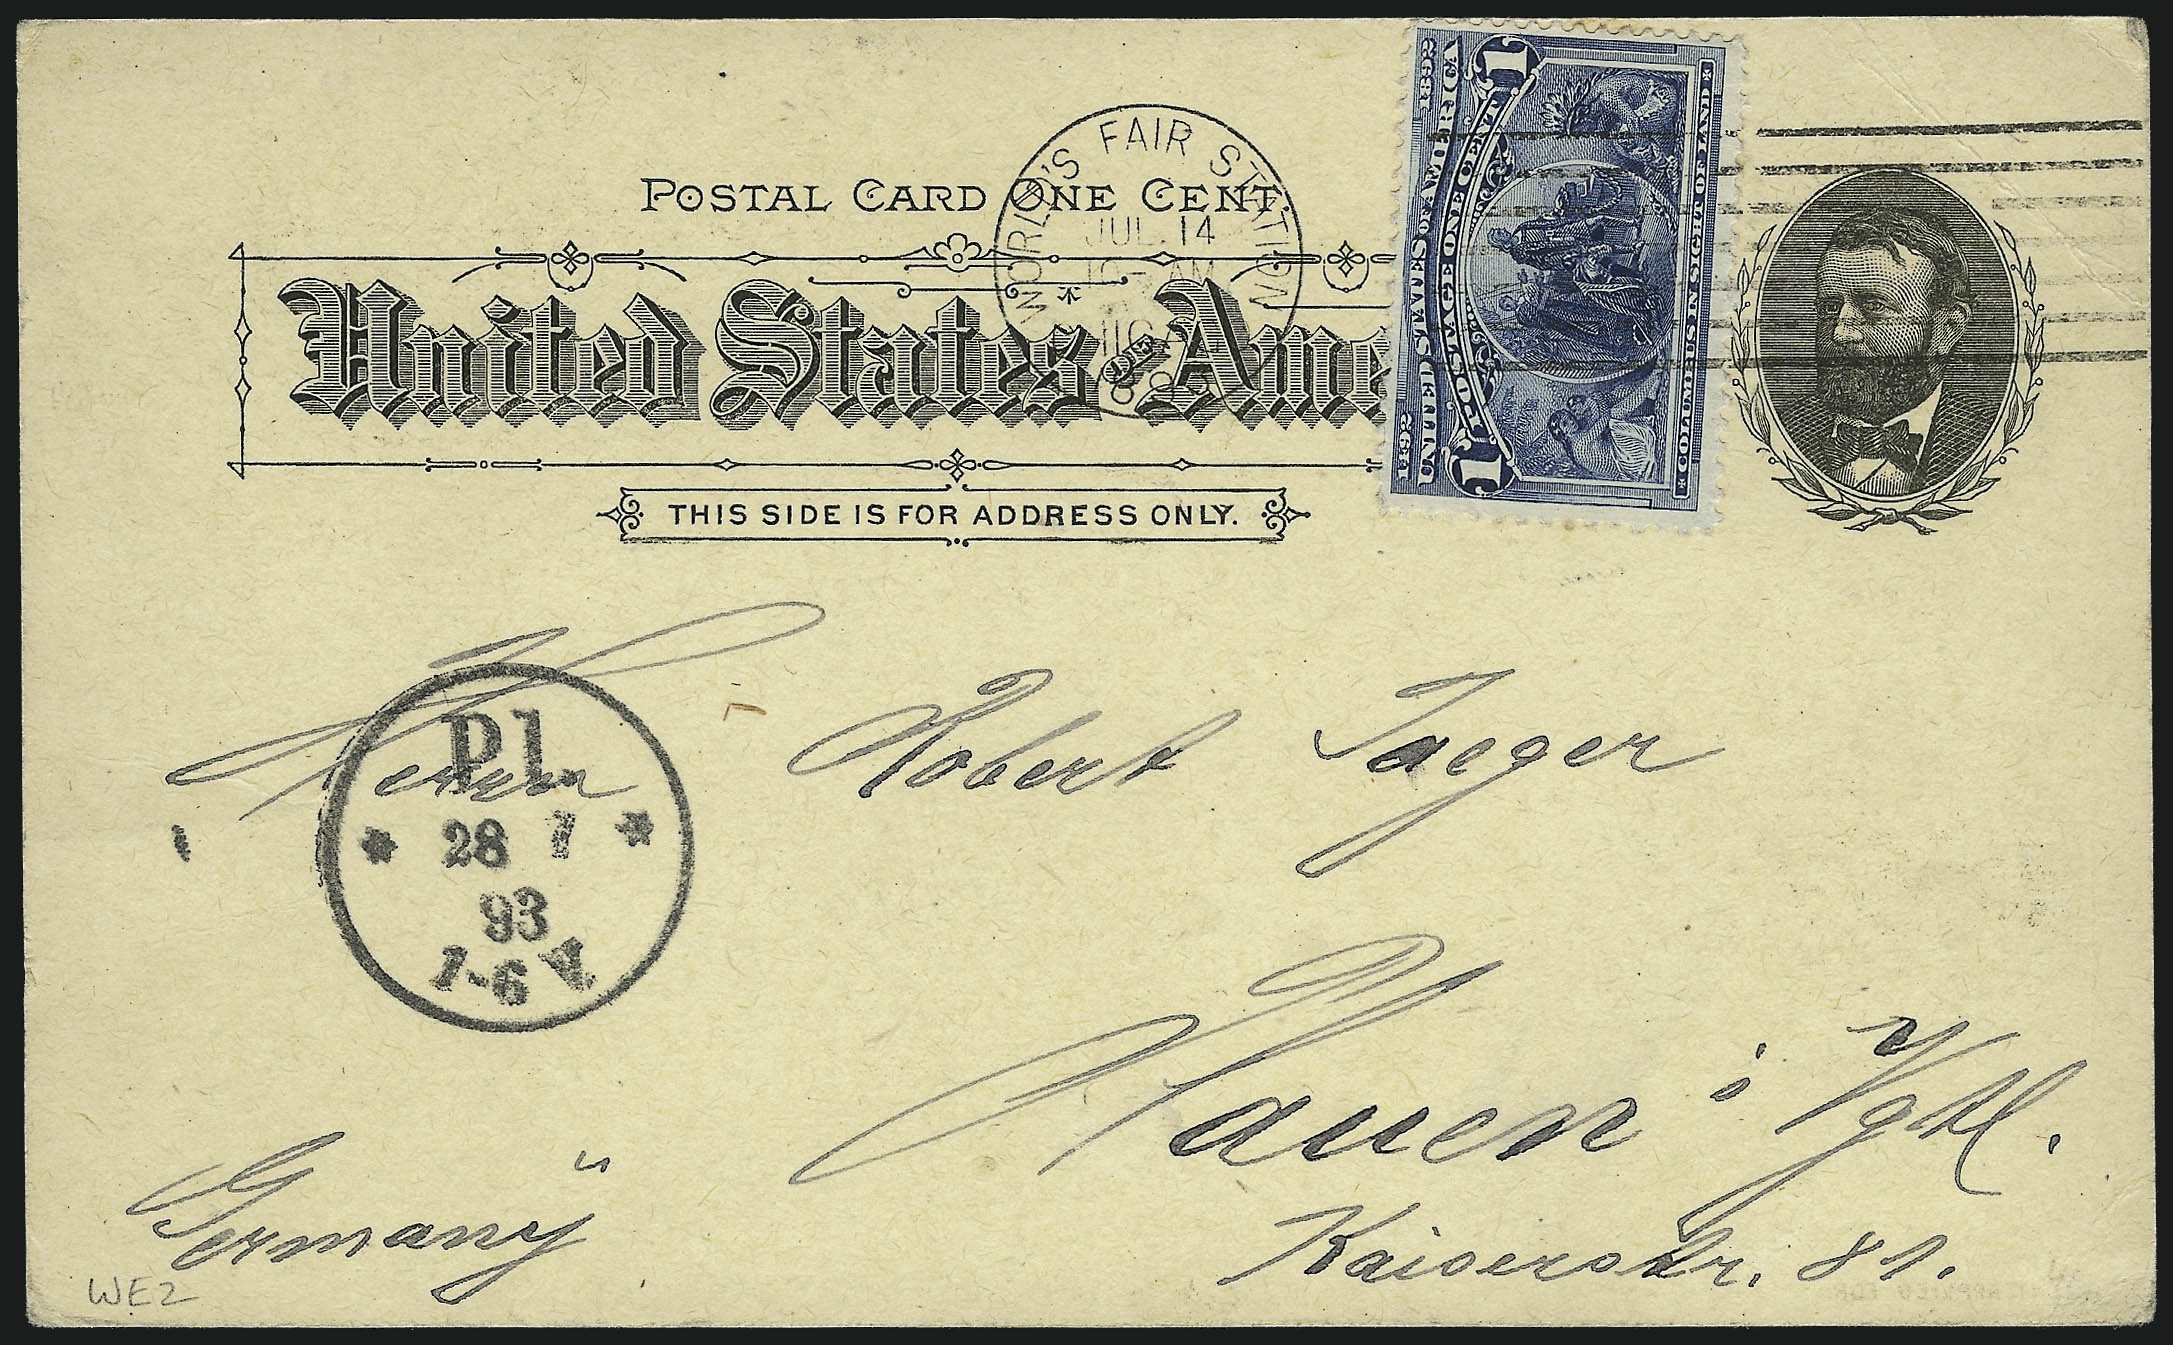 POSTAL CARD ONE CENT.
WORLD'S FAIR STATION
JUL 14
AM
United States OF Ame
THIS SIDE IS FOR ADDRESS ONLY.
1492 1892
UNITED STATES OF AMERICA
1 POSTAGE ONE CENT 1
COLUMBUS IN SIGHT OF LAND
Herrn Robert Jaeger
Pl.
* 28 7 *
93
1-6 V
Plauen i/Vgtl.
Germany
Kaiserstr. 81.
WE2